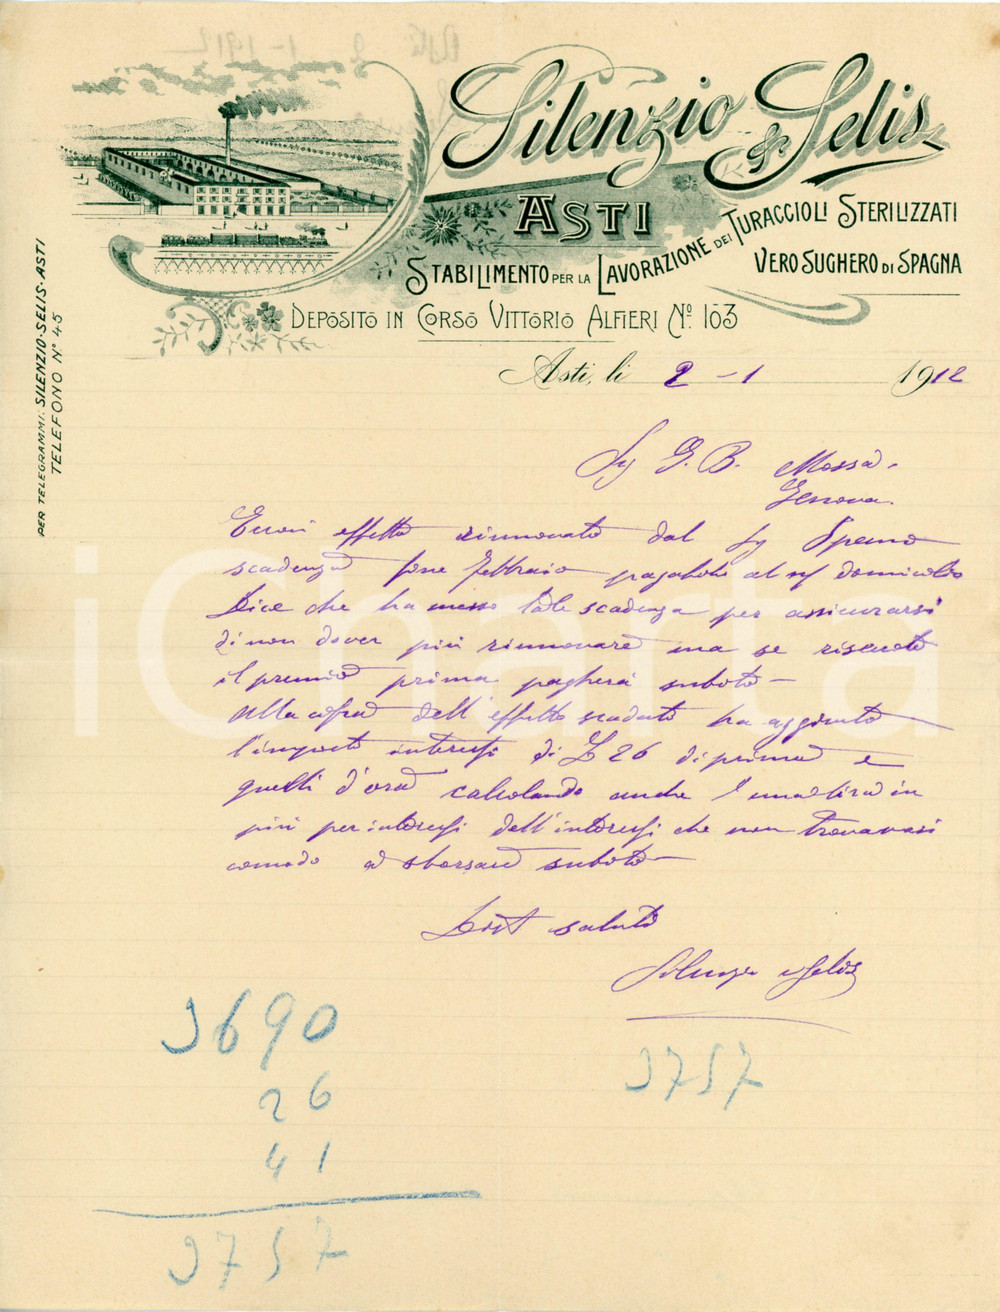 Silenzio & Selis
Asti
Stabilimento per la Lavorazione dei Turaccioli Sterilizzati
Vero Sughero di Spagna
Deposito in Corso Vittorio Alfieri No. 103
per telegrammi: Silenzio-Selis-Asti
Telefono N° 45
Asti, li 2-1 1912
Sig G. B. Mossa.
Genova.
Eccovi effetto rinnovato dal Sig
scadenza fine febbraio pagabile al domicilio
Dice che ha messo tale scadenza per assicurarsi
di non dover più rinnovare ma se riscuote
il premio prima pagherà subito -
Alla cifra dell'effetto scaduto ha aggiunto
l'importo interessi di £ 26 di prima e
quelli d'ora calcolando anche 1 una lira in
più per interessi dell'interessi che non trovavasi
comodo a sborsare subito -
Dist saluti
Silenzio e Selis
3690
26
41
3757
3757
iCharta